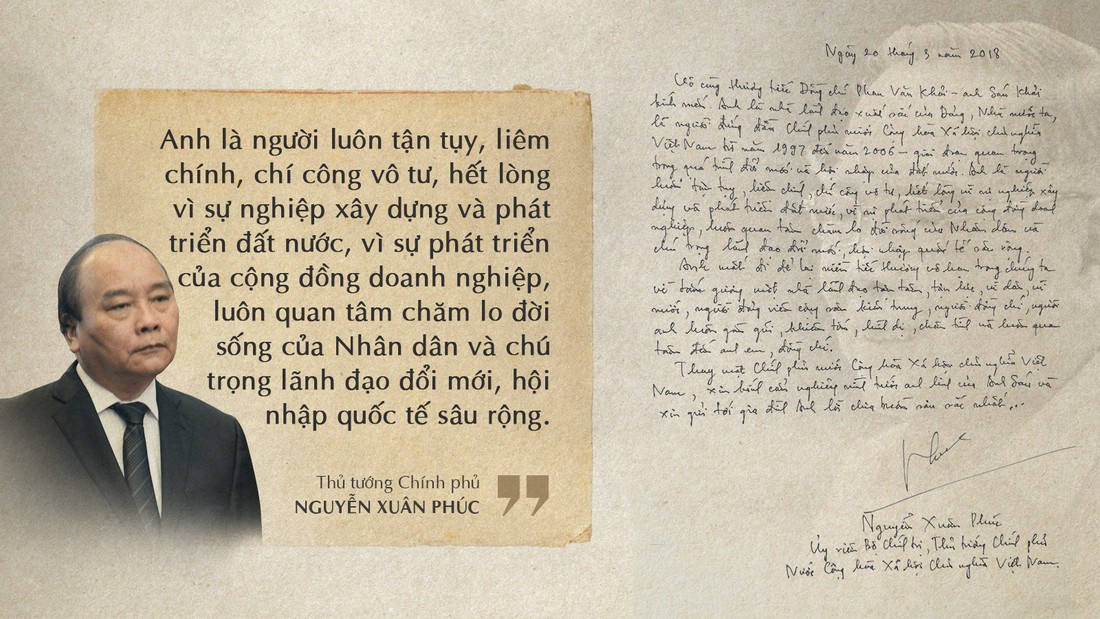 Anh là người luôn tận tụy, liêm
chính, chí công vô tư, hết lòng
vì sự nghiệp xây dựng và phát
triển đất nước, vì sự phát triển
của cộng đồng doanh nghiệp,
luôn quan tâm chăm lo đời
sống của Nhân dân và chú
trọng lãnh đạo đổi mới, hội
nhập quốc tế sâu rộng.
Thủ tướng Chính phủ
NGUYỄN XUÂN PHÚC
Ngày 20 tháng 3 năm 2018
Vô cùng thương tiếc Đồng chí Phan Văn Khải - anh Sáu Khải
kính mến. Anh là nhà lãnh đạo xuất sắc của Đảng, Nhà nước ta,
là người đứng đầu Chính phủ nước Cộng hòa Xã hội chủ nghĩa
Việt Nam từ năm 1997 đến năm 2006 - giai đoạn quan trọng
trong quá trình đổi mới và hội nhập của đất nước. Anh là người
luôn tận tụy, liêm chính, chí công vô tư, hết lòng vì sự nghiệp xây
dựng và phát triển đất nước, vì sự phát triển của cộng đồng doanh
nghiệp, luôn quan tâm chăm lo đời sống của Nhân dân và
chú trọng lãnh đạo đổi mới, hội nhập quốc tế sâu rộng.
Anh mất đi để lại niềm tiếc thương vô hạn trong chúng ta
về tấm gương một nhà lãnh đạo tận tâm, tận lực, vì dân, vì
nước, người đảng viên cộng sản kiên trung, người đồng chí, người
anh luôn gần gũi, khiêm tốn, bình dị, chân tình và luôn quan
tâm đến anh em, đồng chí.
Thay mặt Chính phủ nước Cộng hòa Xã hội chủ nghĩa Việt
Nam, xin kính cẩn nghiêng mình trước anh linh của Anh Sáu và
xin gửi tới gia đình Anh lời chia buồn sâu sắc nhất...
Phúc
Nguyễn Xuân Phúc
Ủy viên Bộ Chính trị, Thủ tướng Chính phủ
Nước Cộng hòa Xã hội Chủ nghĩa Việt Nam.